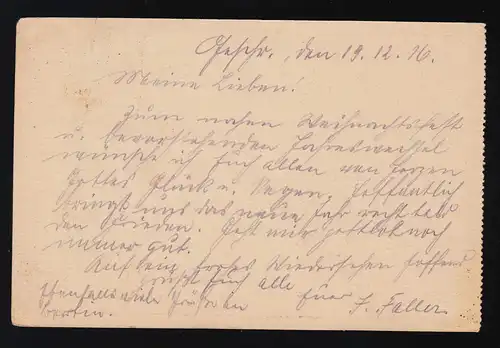 Geschr., den 19.12.16.
Meine Lieben!
Zum nahen Weihnachtsfest
u. bevorstehenden Jahreswechsel
wünsche ich Euch allen von Herzen
Gottes Glück u. Segen, hoffentlich
bringt uns das neue Jahr recht bald
den Frieden. Geht mir gottlob noch
immer gut.
Auf ein frohes Wiedersehen hoffend
grüßt Euch alle
Ebenfalls viele Grüße an Euer F. Faller